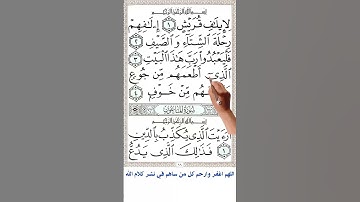 بسم الله الرحمن الرحيم
لِإِيلَٰفِ قُرَيْشٍ ١ إِۦلَٰفِهِمْ
رِحْلَةَ ٱلشِّتَآءِ وَٱلصَّيْفِ ٢
فَلْيَعْبُدُوا۟ رَبَّ هَٰذَا ٱلْبَيْتِ ٣
ٱلَّذِىٓ أَطْعَمَهُم مِّن جُوعٍ
مِّنْ خَوْفٍ ٤
سورة الماعون
بسم الله الرحمن الرحيم
أَرَءَيْتَ ٱلَّذِى يُكَذِّبُ بِٱلدِّينِ
١ فَذَٰلِكَ ٱلَّذِى يَدُعُّ
اللهم اغفر وارحم كل من ساهم في نشر كلام الله